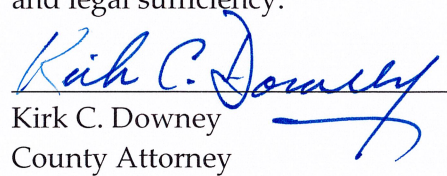 and legal sufficiency:
Kirk C. Downey
Kirk C. Downey
County Attorney